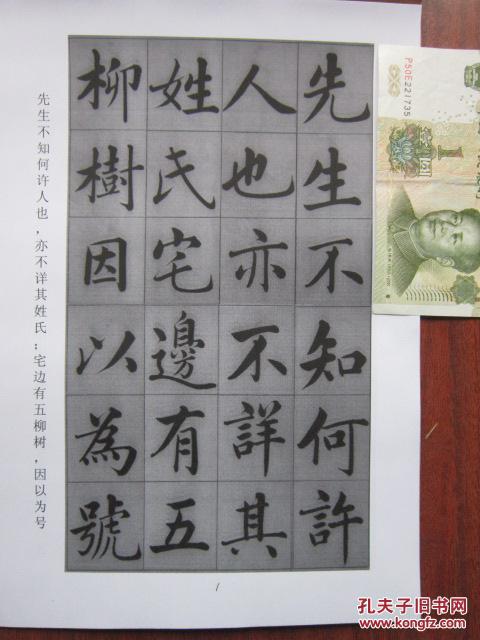 先生不知何許
人也亦不詳其
姓氏宅邊有五
柳樹因以為號
先生不知何许人也，亦不详其姓氏；宅边有五柳树，因以为号
1
P50E221735
1
孔夫子旧书网